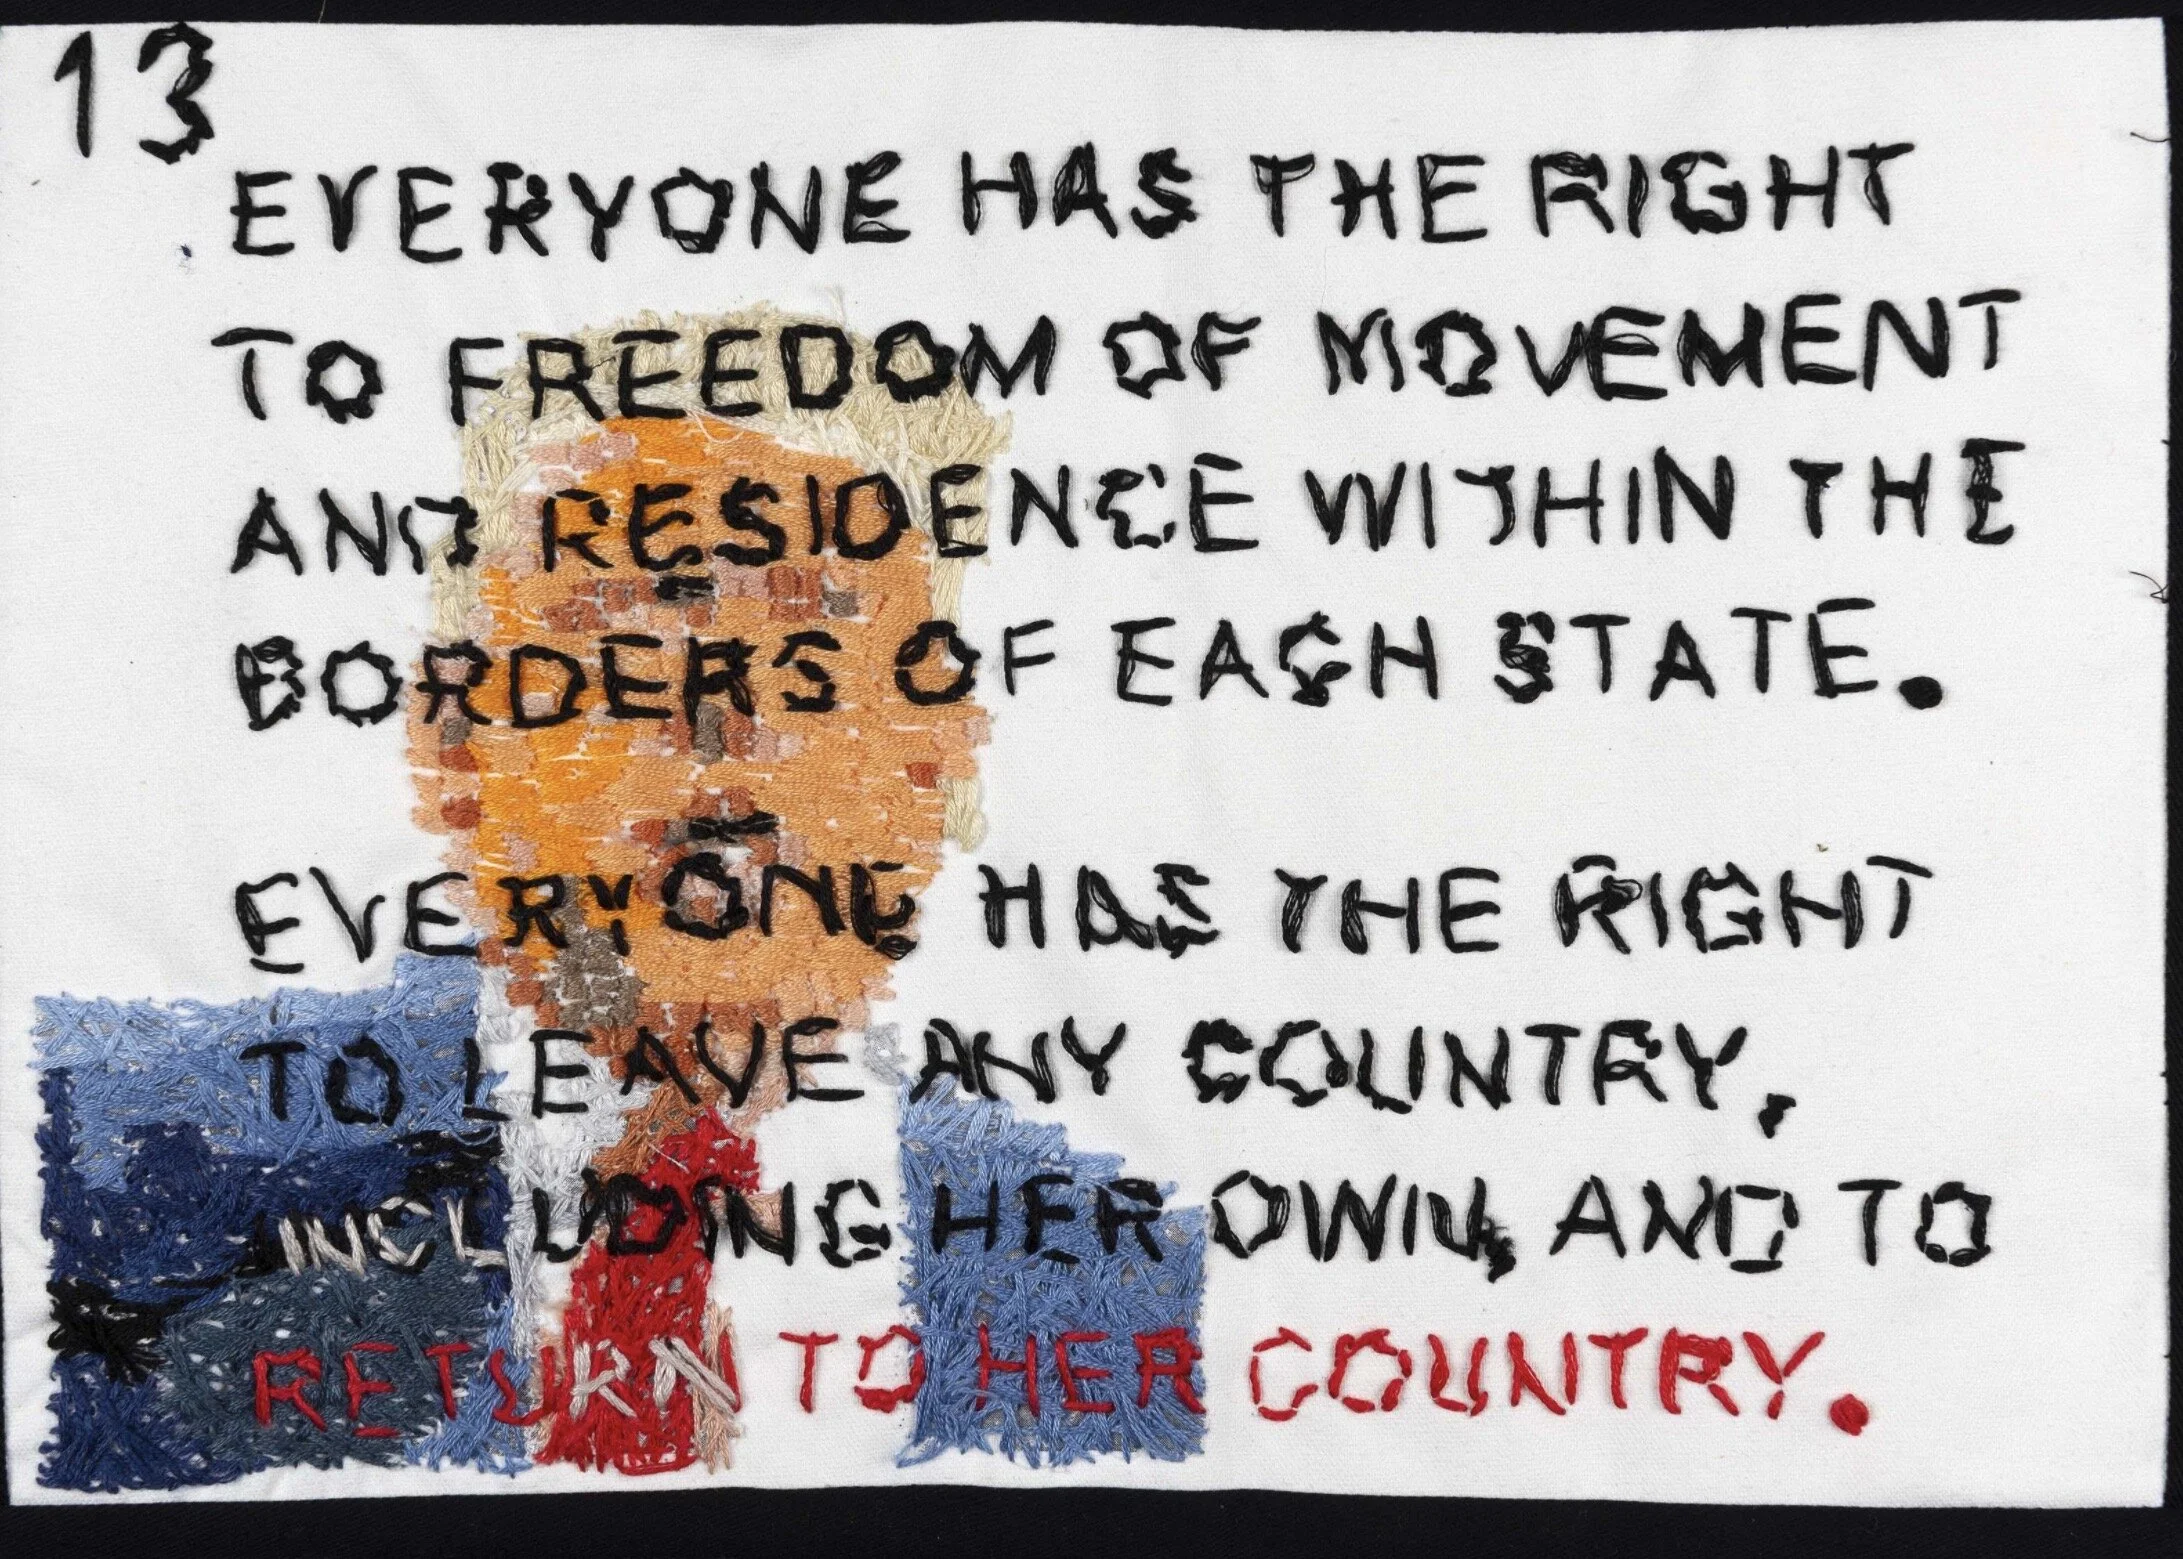 13
EVERYONE HAS THE RIGHT
TO FREEDOM OF MOVEMENT
AND RESIDENCE WITHIN THE
BORDERS OF EACH STATE.
EVERYONE HAS THE RIGHT
TO LEAVE ANY COUNTRY,
INCLUDING HER OWN, AND TO
RETURN TO HER COUNTRY.